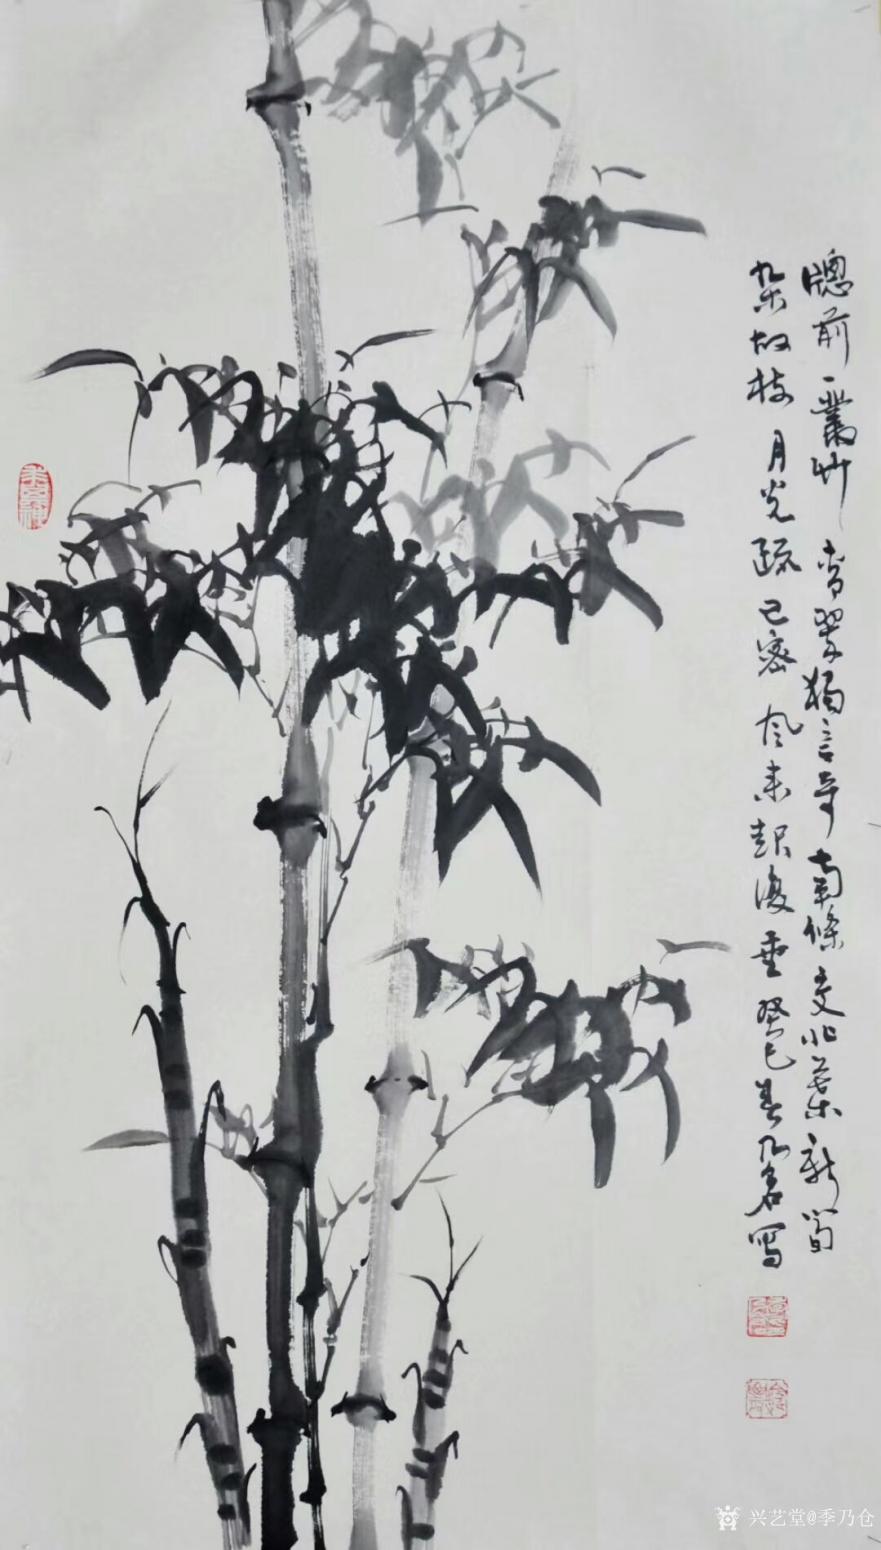 牕前一叢竹青翠獨言奇南條交北葉新筍
杂故枝月光疏已密风来起復垂癸巳春乃倉写
兴艺堂@季乃仓